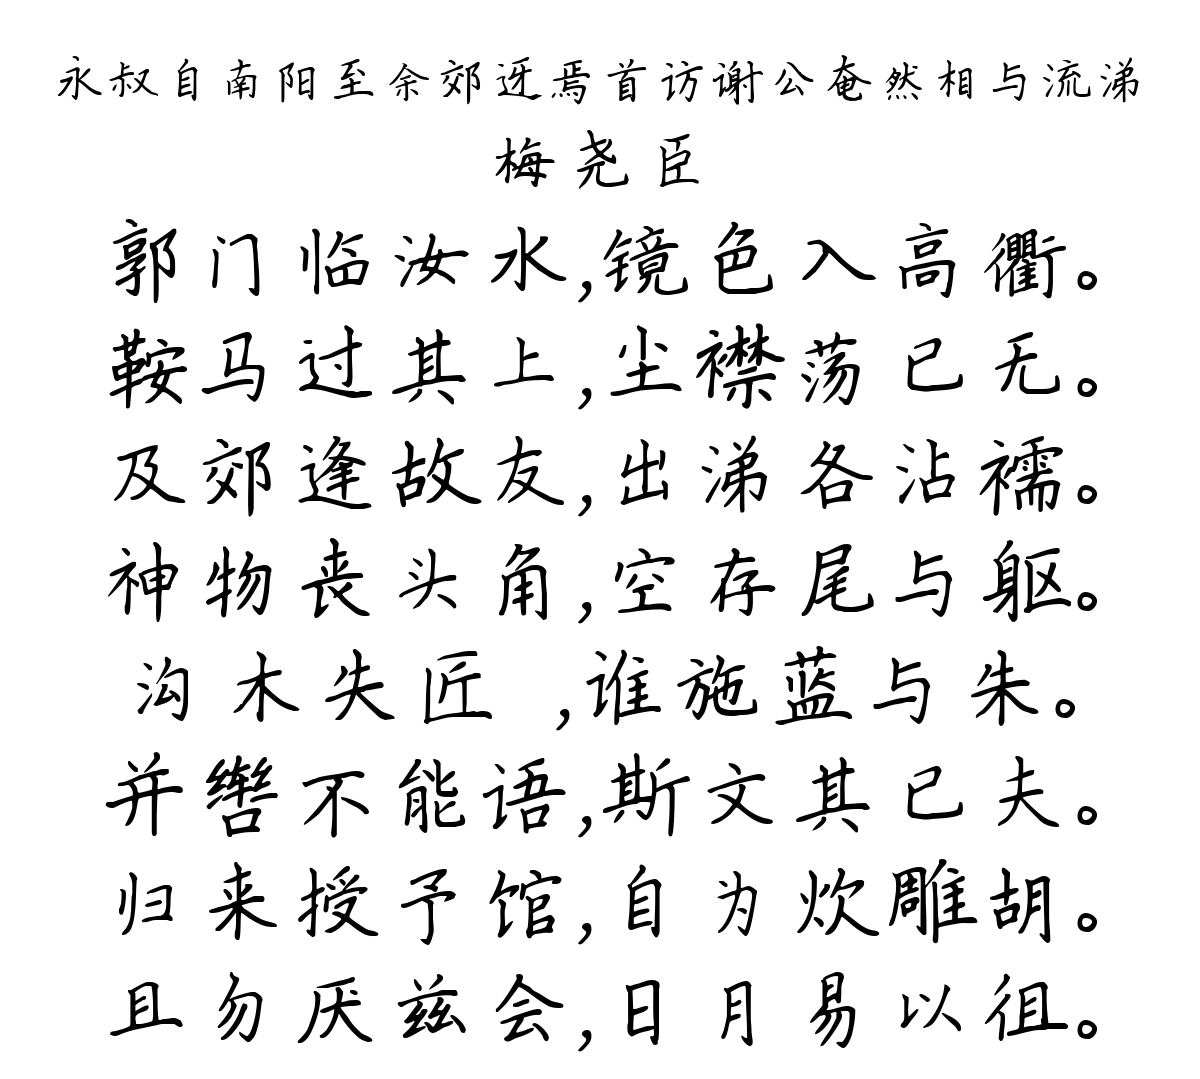 永叔自南阳至余郊迓焉首访谢公奄然相与流涕
梅尧臣
郭门临汝水,镜色入高衢。
鞍马过其上,尘襟荡已无。
及郊逢故友,出涕各沾襦。
神物丧头角,空存尾与躯。
沟木失匠,谁施蓝与朱。
并辔不能语,斯文其已夫。
归来授予馆,自为炊雕胡。
且勿厌兹会,日月易以徂。